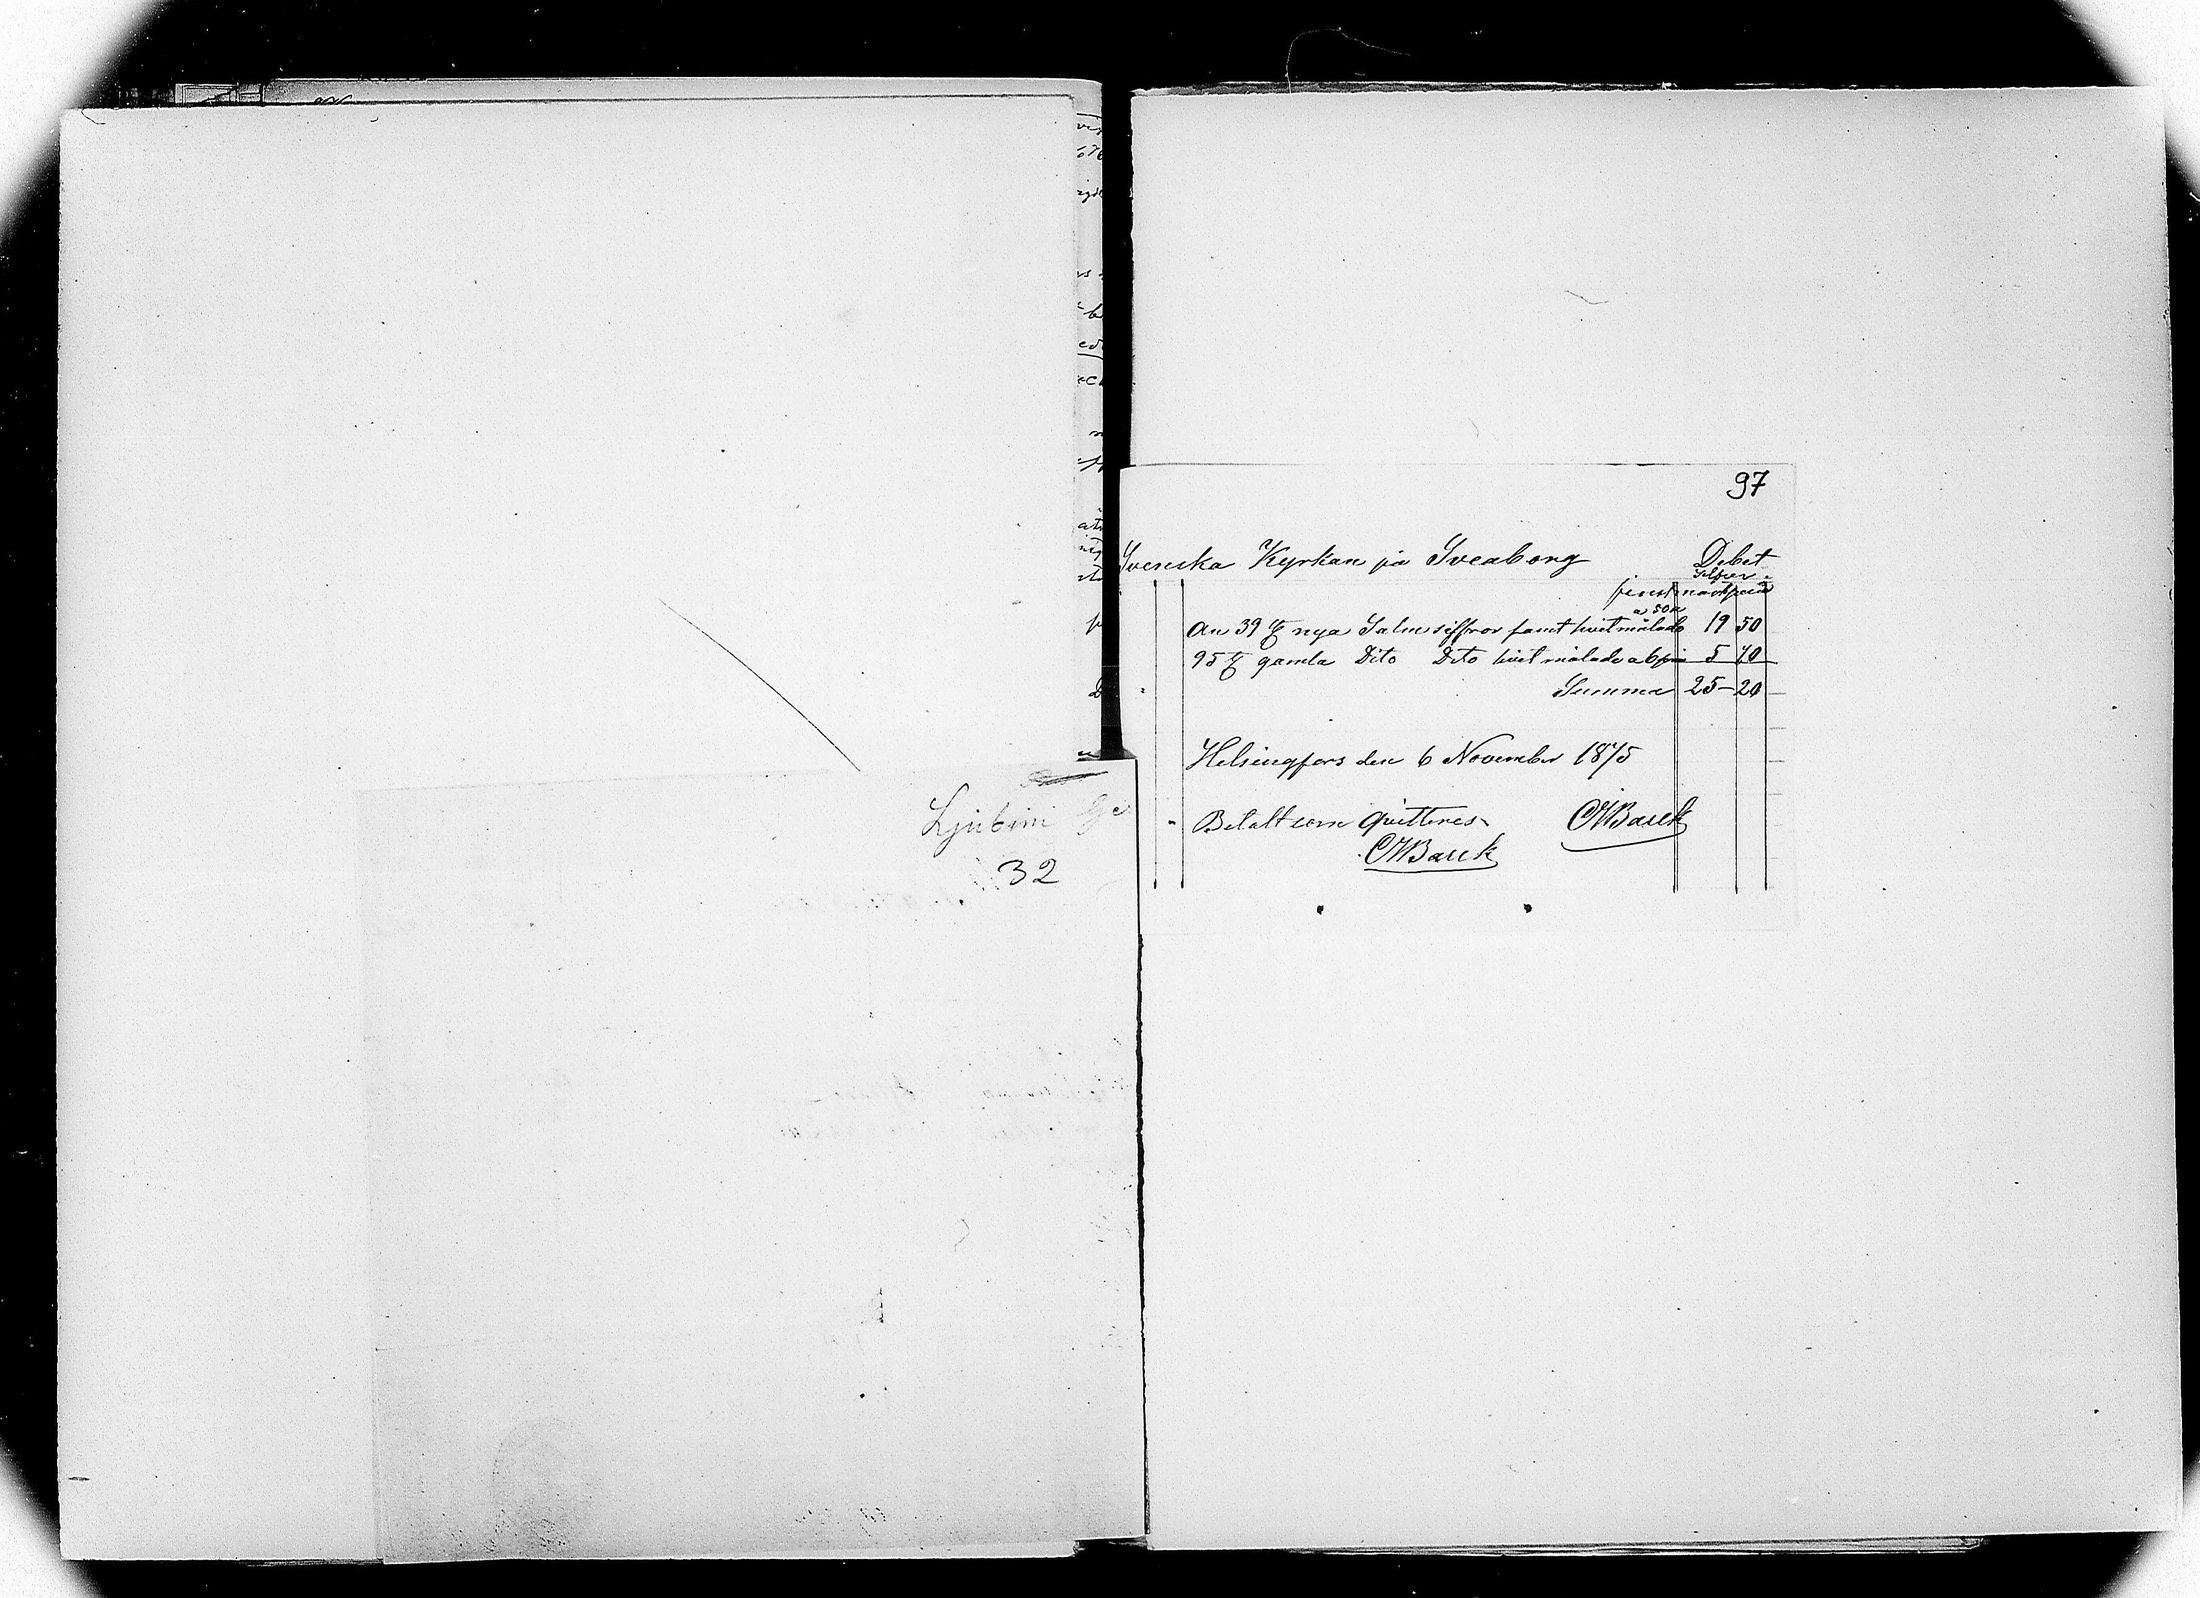 Ljubim
32
97
Svenska Kyrkan på Sveaborg Debet
Silfver
finskt mark penni
a 50 p
An 39 st nya Salm siffror samt hvitmålade 19 50
95 st gamla Dito Dito hvit målade a 6 pi 5 70
Summa 25 - 20
Helsingfors den 6 November 1875
Betalt som Qvitteras CWBarck
CWBarck